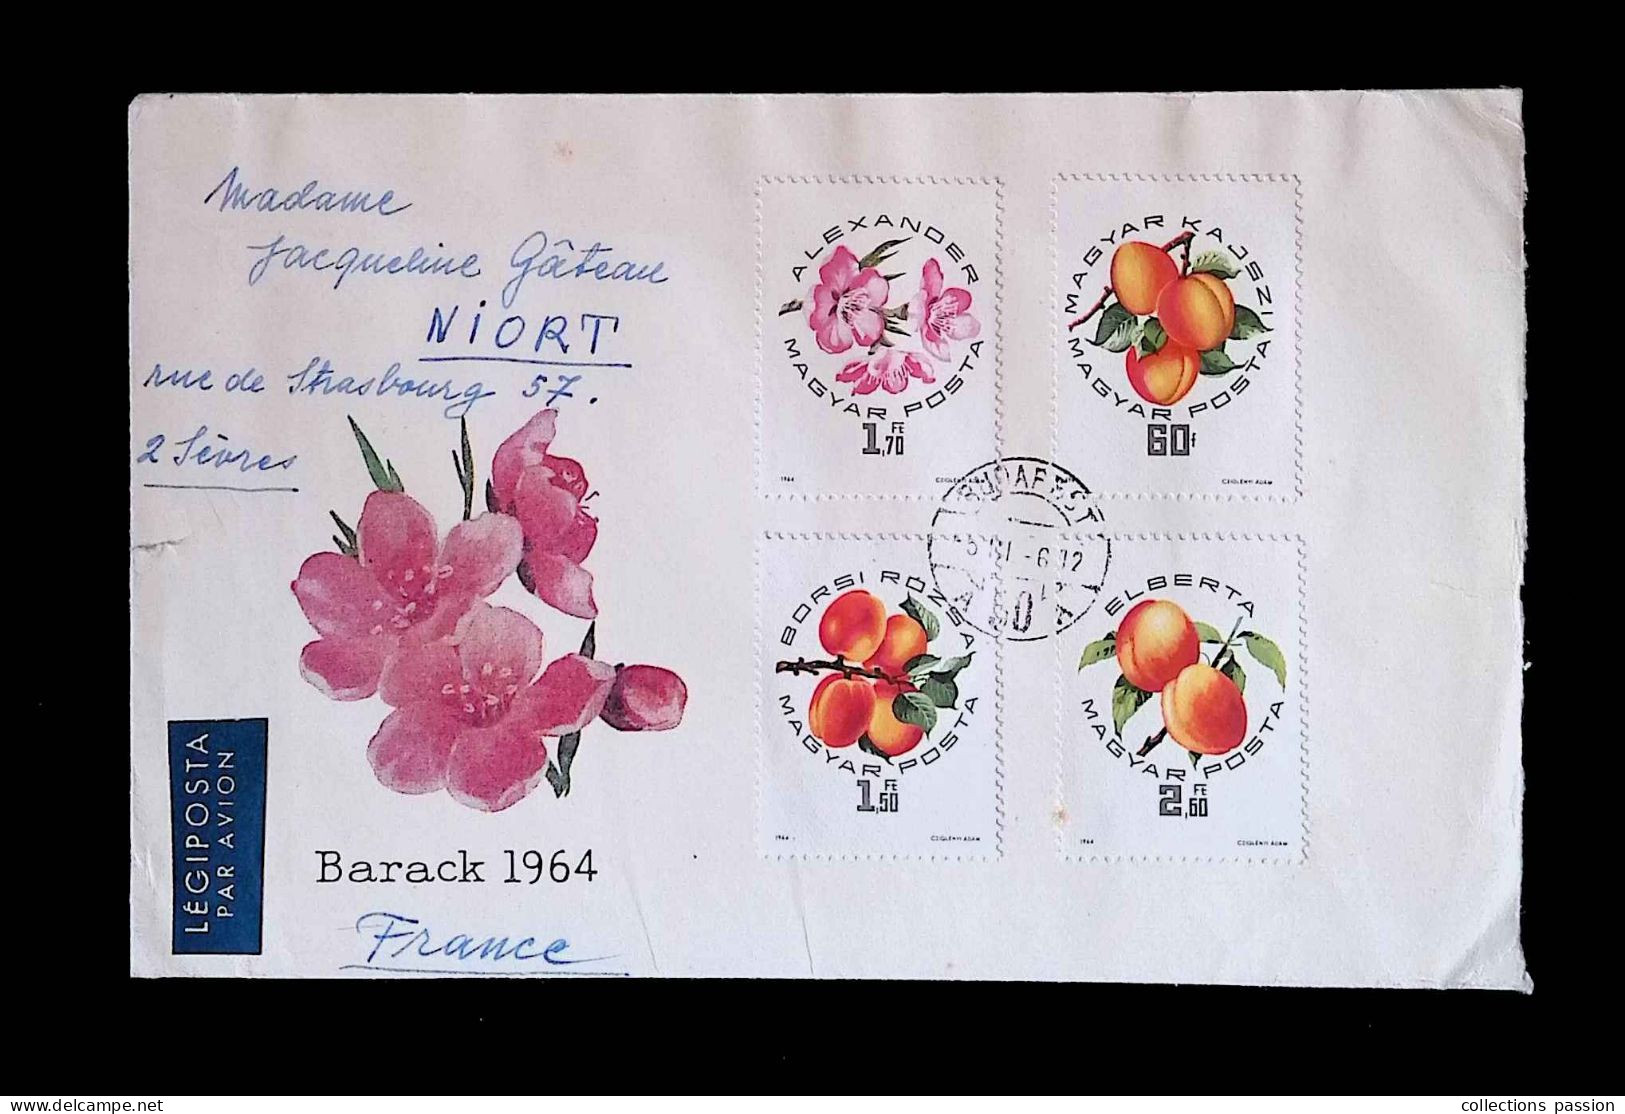 Madame
Jacqueline Gâteau
NIORT
rue de Strasbourg 57.
2 Sèvres
LÉGIPOSTA
PAR AVION
Barack 1964
France
ALEXANDER
MAGYAR POSTA
1,70 FE
1964 CZIGLÉNYI ÁDÁM
MAGYAR KAJSZI
MAGYAR POSTA
60f
CZIGLÉNYI ÁDÁM
BUDAPEST
BORSI RÓZSA
MAGYAR POSTA
1,50 FE
1964 CZIGLÉNYI ÁDÁM
ELBERTA
MAGYAR POSTA
2,60 FE
1964 CZIGLÉNYI ÁDÁM
collections passion